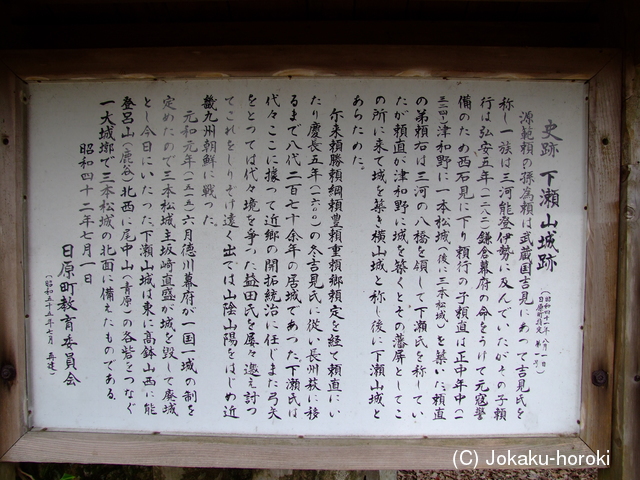 史跡 下瀬山城跡
(昭和四十二年六月一日
日原町指定 第一号)
源範頼の孫為頼は武蔵国吉見にあって吉見氏を
称し一族は三河能登伊勢に及んでいたがその子頼
行は弘安五年(一二八二)鎌倉幕府の命をうけて元寇警
備のため西石見に下り頼行の子頼直は正中年中(一
三二四)津和野に一本松城(後に三本松城)を築いた頼直
の弟頼右は三河の八橋を領して下瀬氏を称してい
たが頼直が津和野に城を築くとその藩屏としてこ
の所に来て城を築き横山城と称し後に下瀬山城と
あらためた。
尓来頼勝頼綱頼豊頼重頼郷頼定を経て頼直にい
たり慶長五年(一六〇〇)の冬吉見氏に従い長州萩に移
るまで八代二百七十余年の居城であつた下瀬氏は
代々ここに據って近郷の開拓統治に任じまた弓矢
をとつては代々境を争つた益田氏を屡々邀え討つ
てこれをしりぞけ遠く出ては山陰山陽をはじめ近
畿九州朝鮮に戦つた。
元和元年(一六一五)六月徳川幕府が一国一城の制を
定めたので三本松城主坂崎直盛が城を毀して廃城
とし今日にいたつた下瀬山城は東に高鉢山西に能
登呂山(鹿谷)北西に尾中山(青原)の各砦をつなぐ
一大城塁で三本松城の北面に備えたものである。
昭和四十二年七月一日
日原町教育委員会
(昭和五十五年七月 再建)
(C) Jokaku-horoki